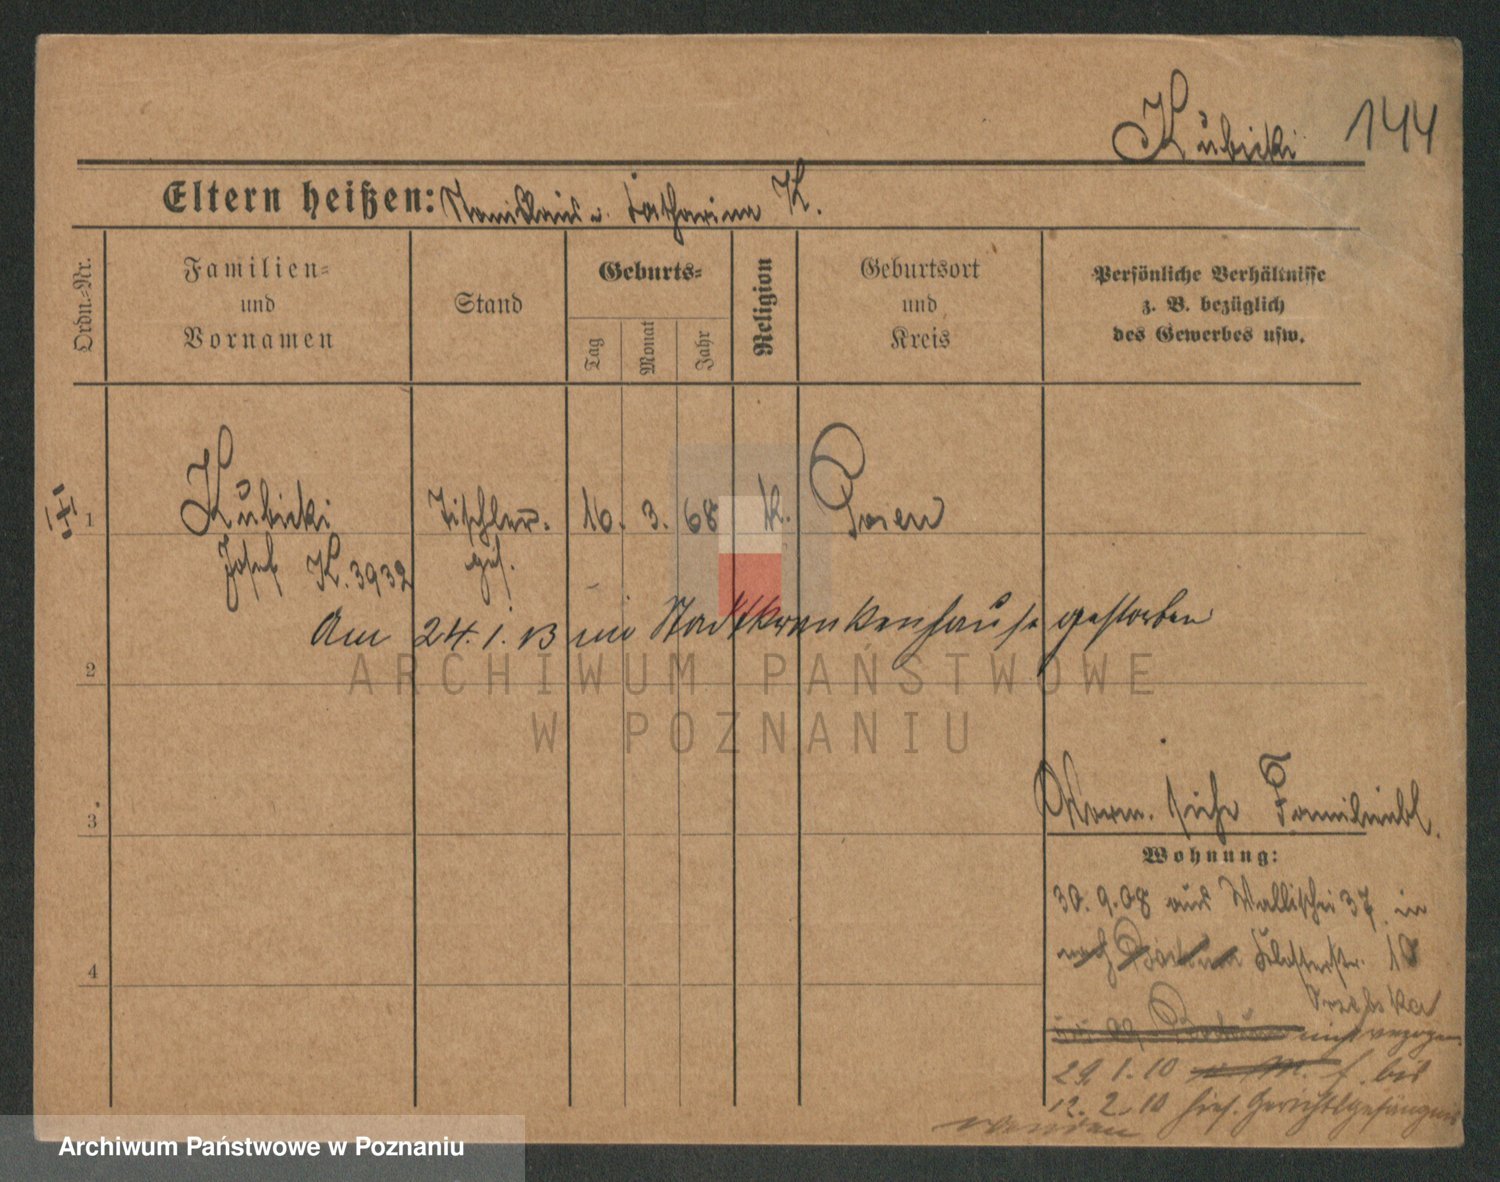 Kubicki 144
Eltern heißen: Stanislaus u. Catharina K.
Ordn.=Nr.
Familien=
und
Vornamen
Stand
Geburts=
Tag
Monat
Jahr
Religion
Geburtsort
und
Kreis
Persönliche Verhältnisse
z. B. bezüglich
des Gewerbes usw.
1 Kubicki Tischler- 16. 3. 68 K. Posen
Josef K. 3932 ges.
Am 24. 1. 13 im Stadtkrankenhause gestorben
2
ARCHIWUM PAŃSTWOWE
W POZNANIU
3
Norm. siehe Familienbl.
Wohnung:
30. 9. 08 aus Wallischei 37 in
nach Klosterstr. 10
4
Wrzeska
verzogen.
29. 1. 10 bis
12. 2. 10 hies. Gerichtsgefängnis
wenden
Archiwum Państwowe w Poznaniu